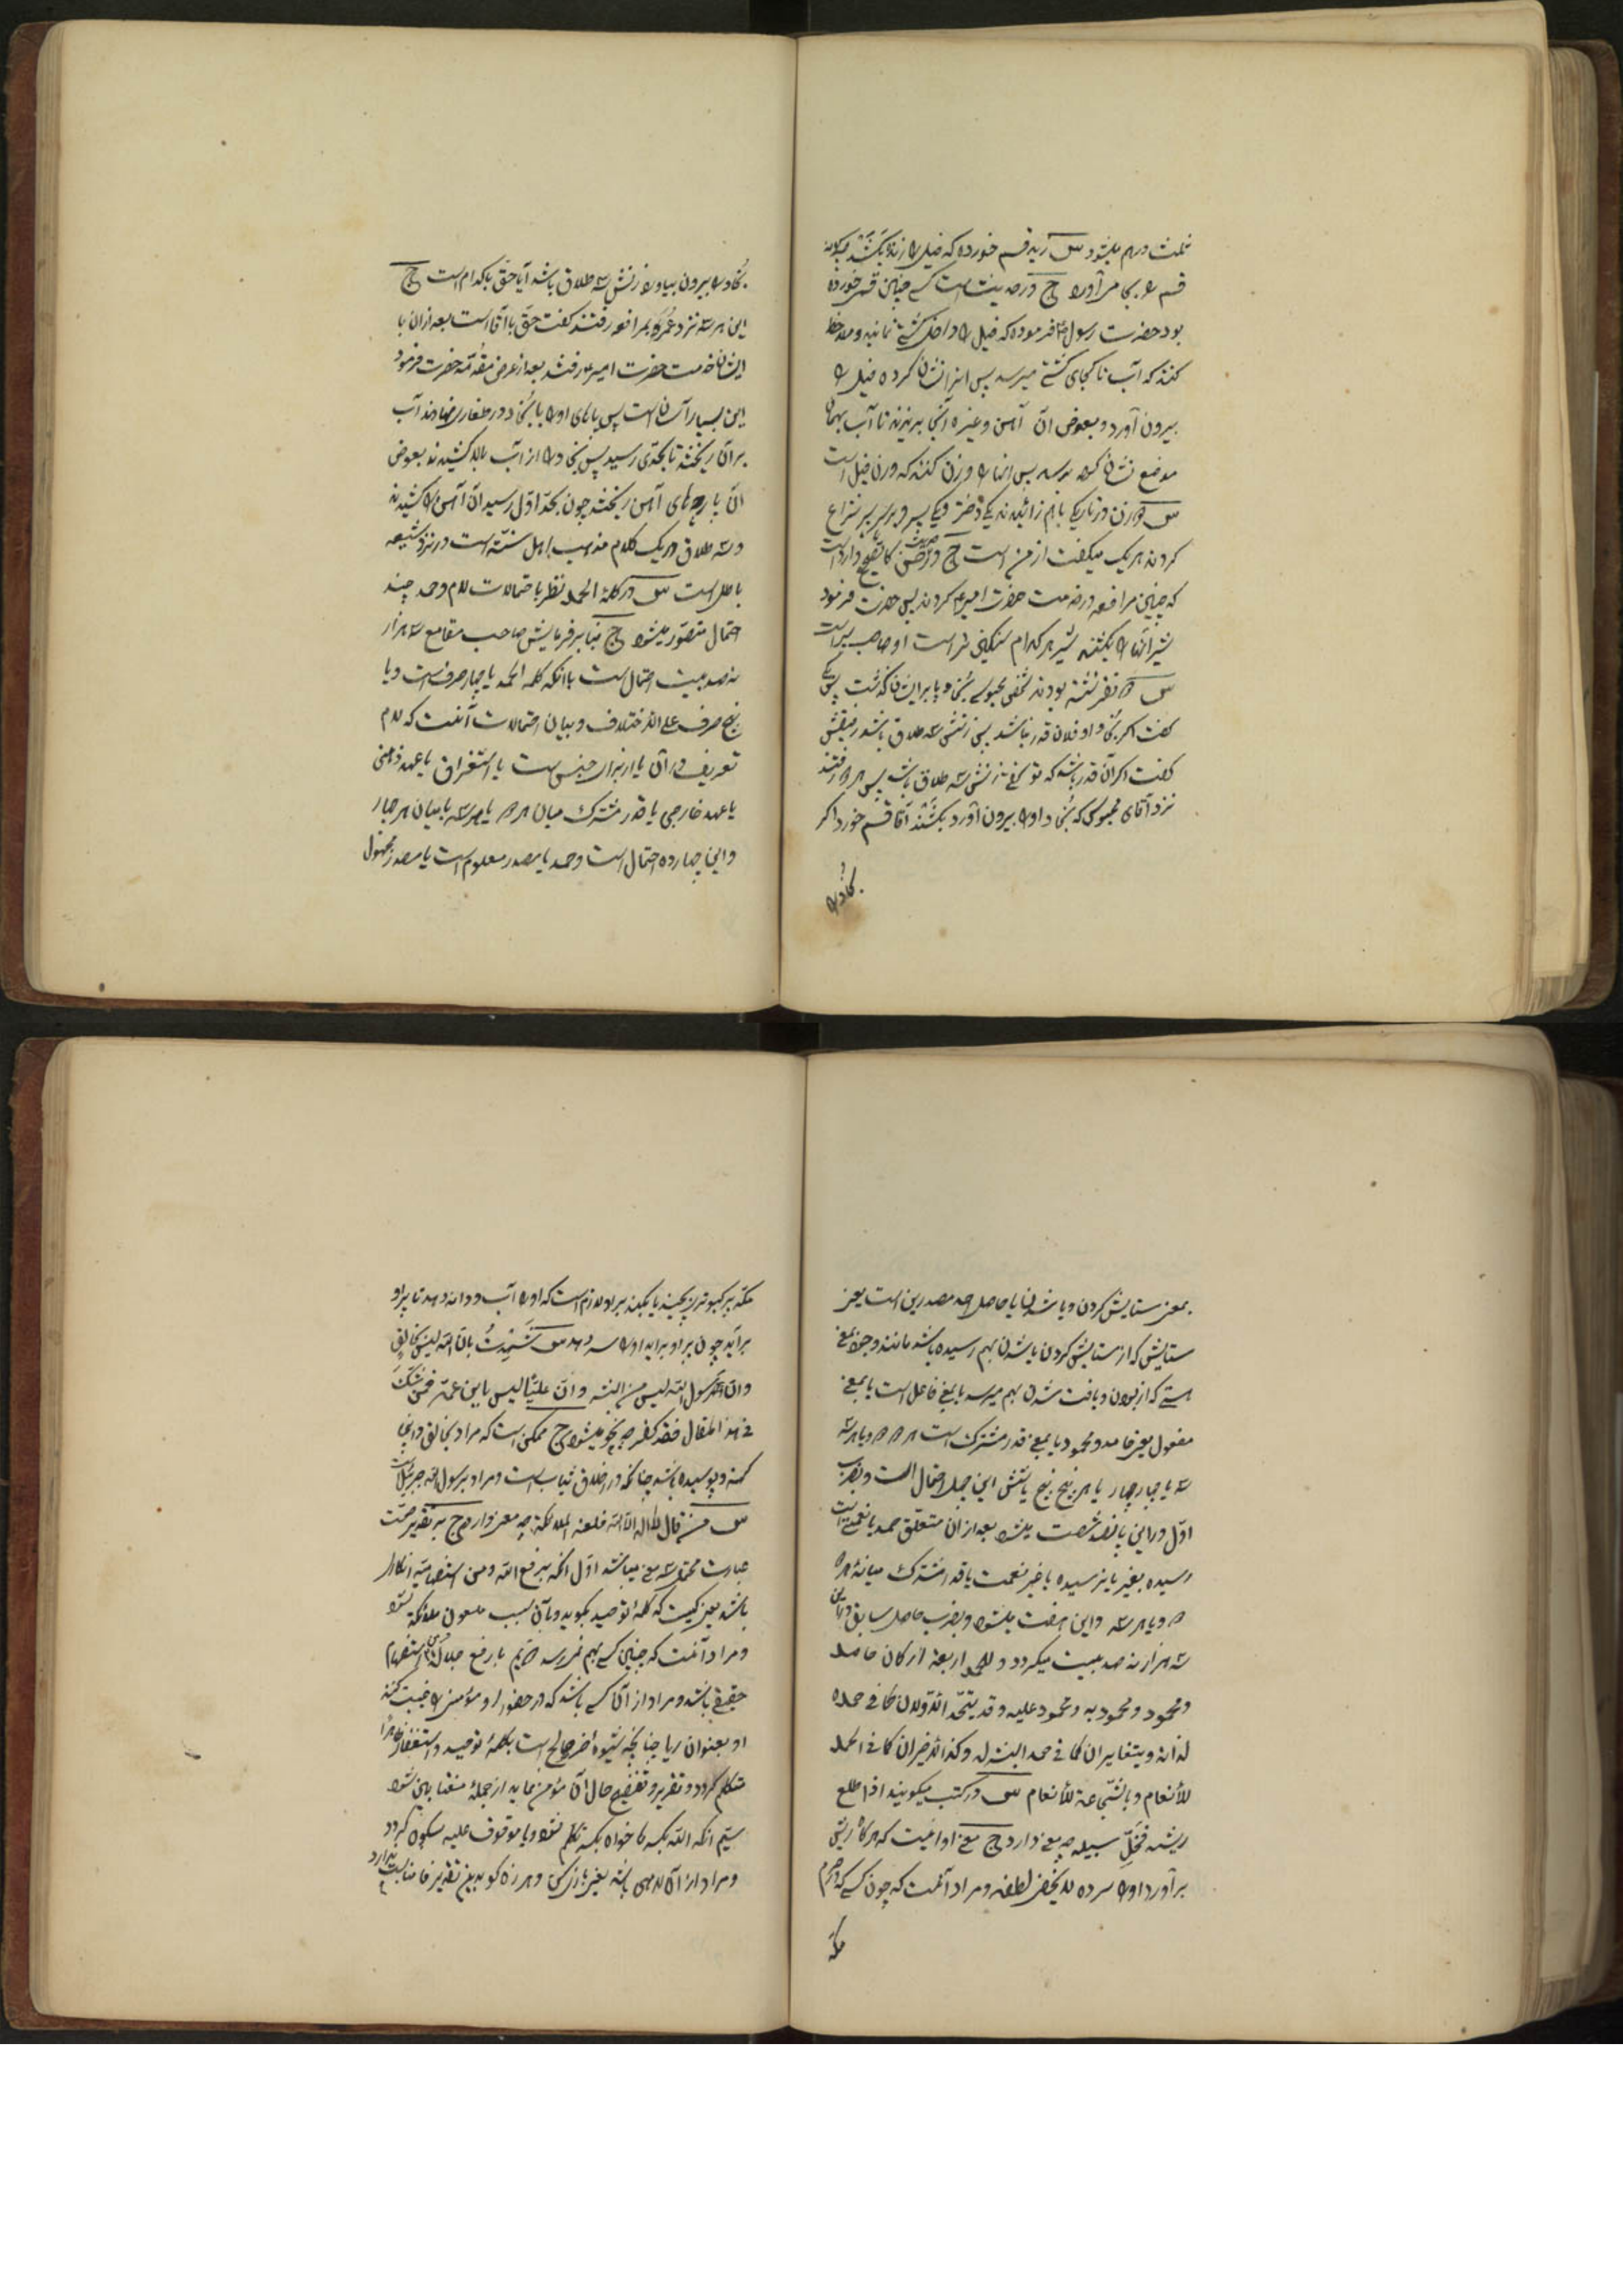 ثلمث درهم میشود س زید قسم خورده که فیل را زنده بکشد چگونه
قسم را بجا می آورد ج در حدیث است کسی چنین قسم خورده
بود حضرت رسول فرموده که فیل را داخل کشتی نمایند و ملاحظه
کنند که آب تا کجای کشتی میرسد پس انرا نشان کرده فیل را
بیرون آورد و بعوض آن آهن و غیره آنجا بریزند تا آب بهمان
موضع نشان کرده برسد پس انها را وزن کنند که وزن فیل است
س دو زن در تاریکی باهم زائیدند یکی دختر و یکی پسر و بر سر پسر نزاع
کردند هر یک میگفت از من است ج در حدیث وارد است
که چنین مرافعه در خدمت حضرت امیر کردند پس حضرت فرمود
شیر آنها را بکشند شیر هر کدام سنگین تر است او صاحب پسر است
س دو نفر نشسته بودند شخصی محبوس بخو در پا بر ایشان گذشت پس یکی
گفت اگر بخو او فلان قدر نباشد پس زنش سه طلاق باشد رفیقش
گفت اگر آن قدر باشد که تو گفتی زنش سه طلاق باشد پس هر دو رفتند
نزد آقای محبوس که بخو او را بیرون آورد بکشند آقا قسم خورد اگر
بخاو را
بخاو را بیرون بیاورد زنش سه طلاق باشد آیا حق با کدام است ج
این هر سه نزد عمر بمرافعه رفتند گفت حق با آقا است بعد از ان با
ایشان خدمت حضرت امیر رفتند بعد از عرض مقدمه حضرت فرمود
این بسیار آسان است پس پاهای او را با بخو در طغاری نهادند آب
بر آن ریختند تا بحدی رسید پس بخو را از آب بالا کشیدند بعوض
آن پارچهای آهن ریختند چون بحد اول رسید ان آهن را کشیدند
و سه طلاق در یک کلام مذهب اهل سنت است و در نزد شیعه
باطل است س در کلمه الحمد نظر باحتمالات لام و حمد چند
احتمال متصور میشود ج بنابر فرمایش صاحب مقامع سه هزار
نهصد بیست احتمال است با آنکه کلمه الحمد یا چهار حرف است و یا
پنج حرف علی الاختلاف و بیان احتمالات آنست که لام
تعریف در آن یا از برای جنس است یا استغراق یا عهد ذهنی
یا عهد خارجی یا قدر مشترک میان هر دو یا هر سه یا میان هر چهار
و این چهارده احتمال است و حمد یا مصدر معلوم است یا مصدر مجهول
بمعنی ستایش کردن و یا شدن یا حاصل احد مصدرین است یعنی
ستایش که از ستایش کردن یا شدن بهم رسیده باشد مانند وجود بمعنی
هستی که از بودن و یافت شدن بهم میرسد یا بمعنی فاعل است یا بمعنی
مفعول یعنی حامد و محمود یا بمعنی قدر مشترک است هر دو دو و یا هر سه
سه یا چهار چهار یا هر پنج پنج یا شش این چهل احتمال است و بضرب
اول در این پانصد شصت میشود بعد از ان متعلق حمد یا نعمتی است
رسیده بغیر یا نرسیده یا غیر نعمت یا قدر مشترک میانه هر دو
دو و یا هر سه و این هفت میشود و بضرب حاصل سابق در این
سه هزار نه صد بیست میگردد و للحمد اربعة ارکان حامد
و محمود و محمود به و محمود علیه و قد یتحد الاولان کما فی حمده
لذاته و یتغایران کما فی حمد البشر له و کذا الاخیران کما فی الحمد
للأنعام و بالشجاعة للأنعام س در کتب میگویند اذا طلع
ریشه فخل سبیله چه معنی دارد ج معنی او اینست که هر گاه ریش
برآورد او را سر ده لا یخفی لطفه و مراد آنست که چون کسی که در حرم
مکه
مکه پر کبوتر را بچیند یا بکند بر او لازم است که او را آب و دانه دهد تا پر او
برآید چون پر او برآید او را سر دهد س شهدت بان الله لیس بخالق
و ان محمد رسول الله لیس من البشر و ان علیا لیس بابن عمه فمن شک
فی هذا المقال فقد کفر چه نحو میشود ج ممکن است که مراد بخالق
کهنه و پوسیده باشد چنانکه در اخلاق ثیاب است و مراد برسول الله جبرئیل است
س من قال لا اله الا الله فلعنه الملائکة چه معنی دارد ج بر تقدیر صحت
عبارت محتمل سه معنی میباشد اول انکه برفع الله و من استفهامیه انکار
باشد یعنی کیست که کلمه توحید بگوید و بآن سبب ملعون ملائکه شود
و مراد آنست که چنین کسی بهم نمیرسد دویم با رفع جلاله و من استفهام
حقیقی باشد و مراد از آن کسی باشد که در حضور او مؤمنی را غیبت کنند
او بعنوان ریا چنانچه شیوه اخر صالح است بکلمه توحید و استغفار
متکلم گردد و تقریر و تفضیح حال آن مؤمن نماید از جمله مغتابین شود
سیم انکه الله بکسر ها خواه بکسر تکلم شود و یا موقوف علیه سکون گردد
و مراد از آن لاهی باشد یعنی بازی کن و هرزه گو بدین تقدیر فا مناسبت ندارد